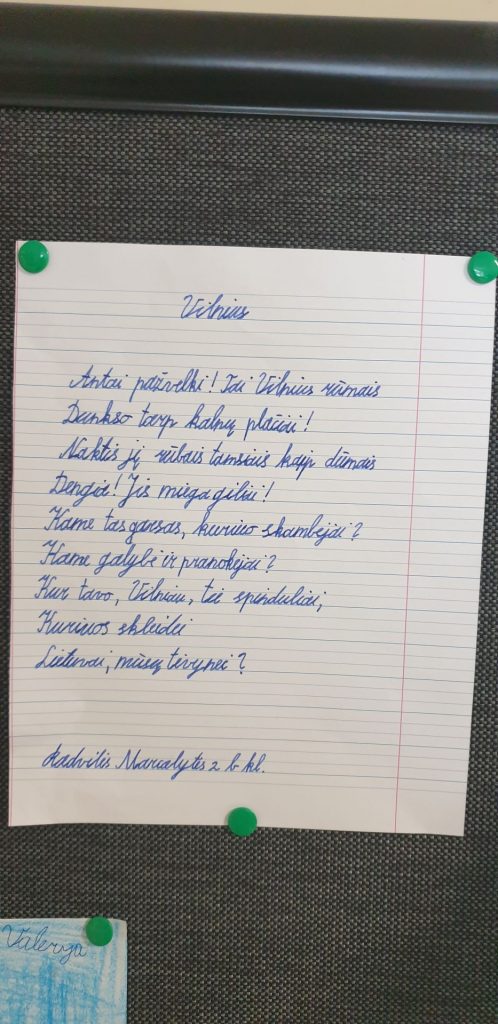 Vilnius
Antai pažvelki! Tai Vilnius rūmais
Dunkso tarp kalnų plačiai!
Naktis jį rūbais tamsiais kaip dūmais
Dengia! Jis miega giliai!
Kame tas garsas, kuriuo skambėjai?
Kame galybė ir pranokėjai?
Kur tavo, Vilniau, tie spinduliai,
Kuriuos skleidei
Lietuvai, mūsų tėvynei?
Radvilis 2 b kl.
Valerya